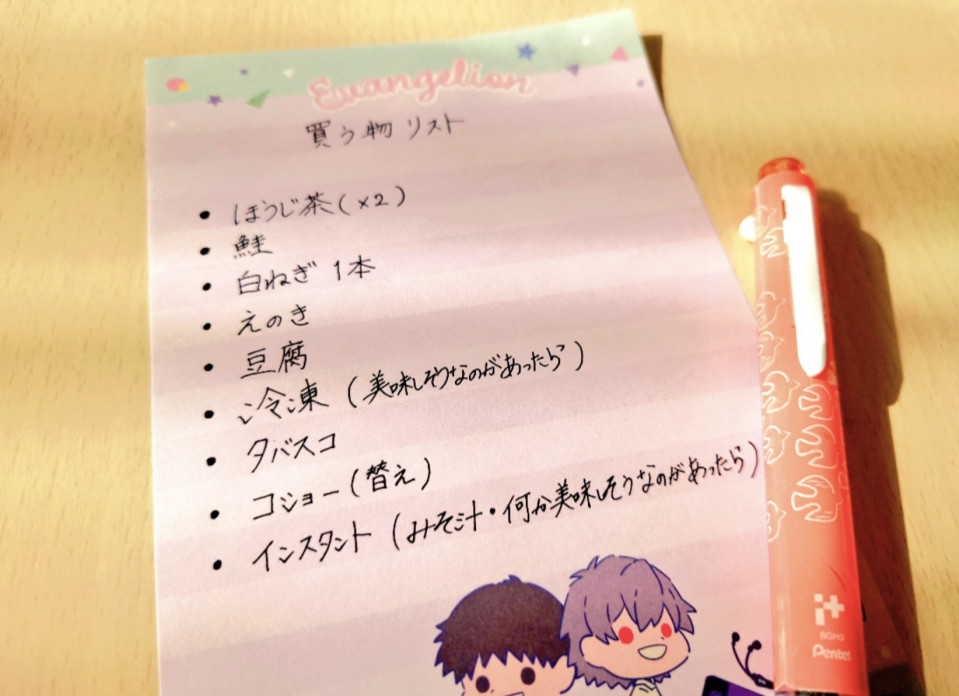 Evangelion
買う物リスト
• ほうじ茶(×2)
• 鮭
• 白ねぎ 1本
• えのき
• 豆腐
• 冷凍(美味しそうなのがあったら)
• タバスコ
• コショー(替え)
• インスタント(みそ汁・何か美味しそうなのがあったら)
i+
BGH3
Pentel